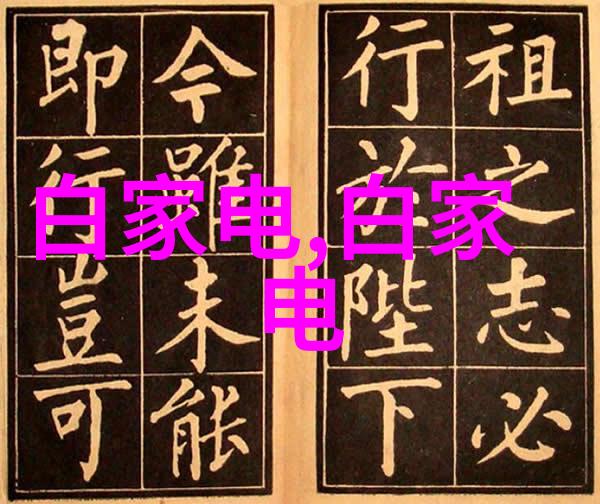 祖之志必
行於陛下
今雖未能
即行豈可
白家电,白家
电